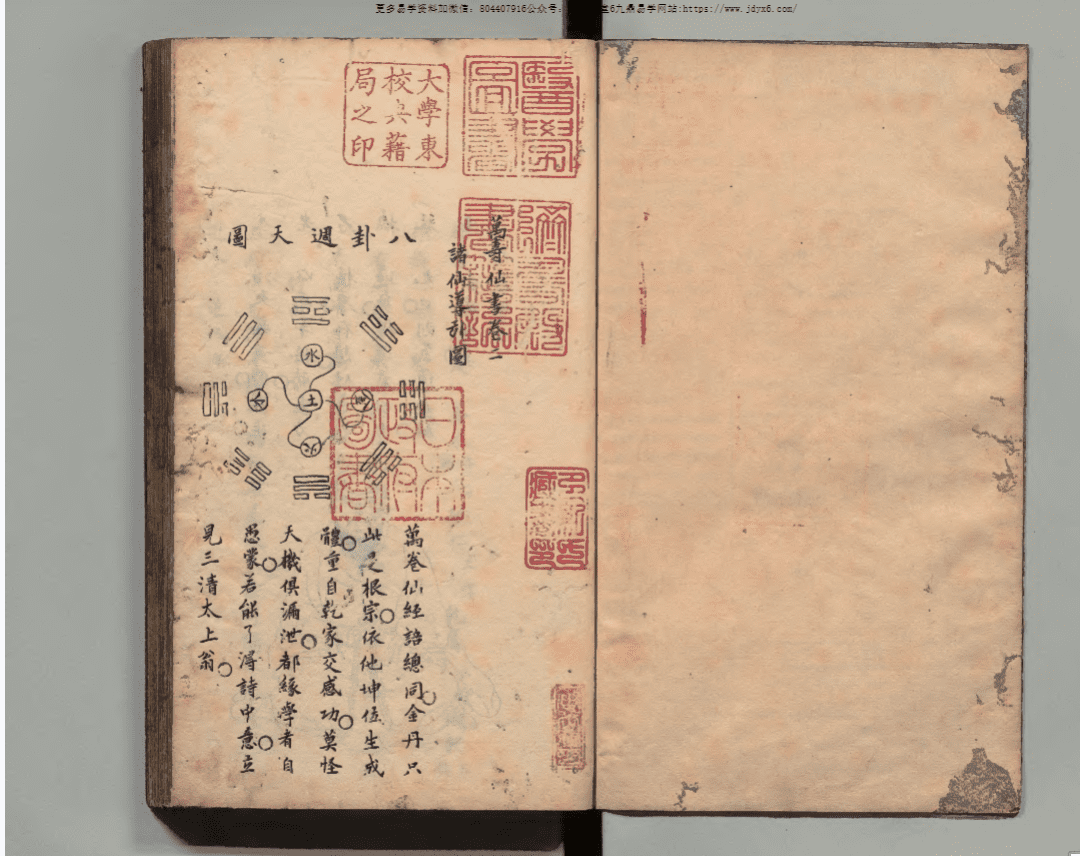 更多易学资料加微信：804407916公众号：
6九鼎易学网站:https://www.jdyx6.com/
大學東
校典藉
局之印
醫學
圖書
日本
政府
圖書
萬壽仙書卷二
諸仙導引圖
八卦週天圖
水
土
火
萬卷仙經語總同金丹只
此是根宗依他坤位生成
體重自乾家交感功莫怪
天機俱漏泄都緣學者自
愚蒙若能了得詩中意立
見三清太上翁